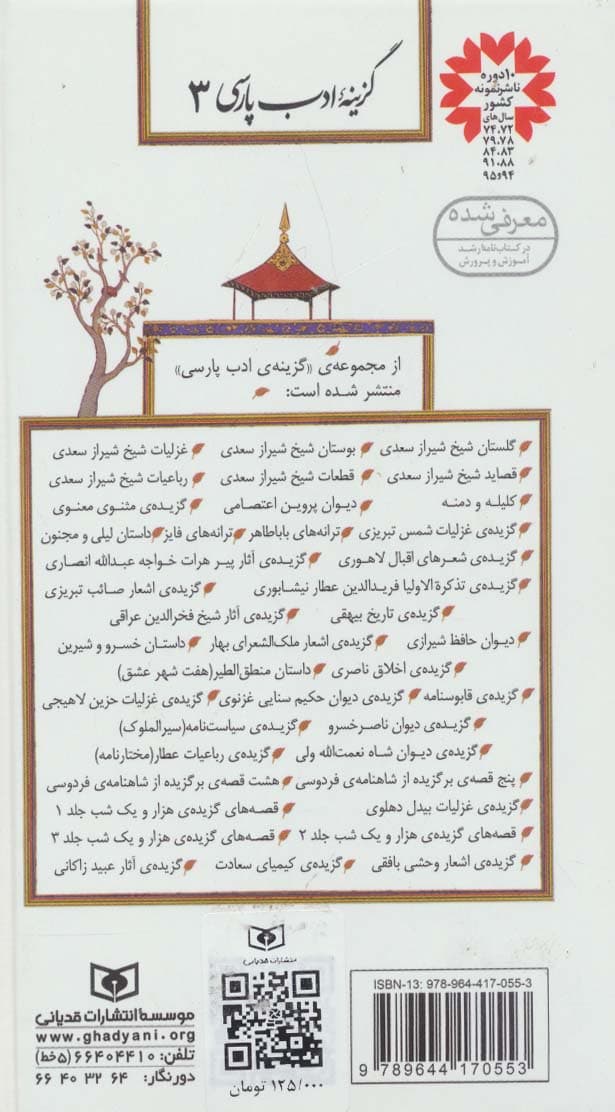 گزینهٔ ادب پارسی ۳
۱۰ دوره
ناشر نمونه
کشور
سال‌های
۷۴،۷۲
۷۹،۷۸
۸۴،۸۳
۹۱،۸۸
۹۴و۹۵
معرفی شده
در کتاب‌نامهٔ رشد
آموزش و پرورش
از مجموعه‌ی «گزینه‌ی ادب پارسی»
منتشر شده است:
گلستان شیخ شیراز سعدی بوستان شیخ شیراز سعدی غزلیات شیخ شیراز سعدی
قصاید شیخ شیراز سعدی قطعات شیخ شیراز سعدی رباعیات شیخ شیراز سعدی
کلیله و دمنه دیوان پروین اعتصامی گزیده‌ی مثنوی معنوی
گزیده‌ی غزلیات شمس تبریزی ترانه‌های باباطاهر ترانه‌های فایز داستان لیلی و مجنون
گزیده‌ی شعرهای اقبال لاهوری گزیده‌ی آثار پیر هرات خواجه عبدالله انصاری
گزیده‌ی تذکرة الاولیا فریدالدین عطار نیشابوری گزیده‌ی اشعار صائب تبریزی
گزیده‌ی تاریخ بیهقی گزیده‌ی آثار شیخ فخرالدین عراقی
دیوان حافظ شیرازی گزیده‌ی اشعار ملک‌الشعرای بهار داستان خسرو و شیرین
گزیده‌ی اخلاق ناصری داستان منطق‌الطیر(هفت شهر عشق)
گزیده‌ی قابوسنامه گزیده‌ی دیوان حکیم سنایی غزنوی گزیده‌ی غزلیات حزین لاهیجی
گزیده‌ی دیوان ناصرخسرو گزیده‌ی سیاست‌نامه(سیرالملوک)
گزیده‌ی دیوان شاه نعمت‌الله ولی گزیده‌ی رباعیات عطار(مختارنامه)
پنج قصه‌ی برگزیده از شاهنامه‌ی فردوسی هشت قصه‌ی برگزیده از شاهنامه‌ی فردوسی
گزیده‌ی غزلیات بیدل دهلوی قصه‌های گزیده‌ی هزار و یک شب جلد ۱
قصه‌های گزیده‌ی هزار و یک شب جلد ۲ قصه‌های گزیده‌ی هزار و یک شب جلد ۳
گزیده‌ی اشعار وحشی بافقی گزیده‌ی کیمیای سعادت گزیده‌ی آثار عبید زاکانی
موسسهٔ انتشارات قدیانی
www.ghadyani.org
تلفن: ۶۶۴۰۴۴۱۰ (۵ خط)
دورنگار: ۶۶ ۴۰ ۳۲ ۶۴
انتشارات قدیانی
۱۲۵/۰۰۰ تومان
ISBN-13: 978-964-417-055-3
9 789644 170553